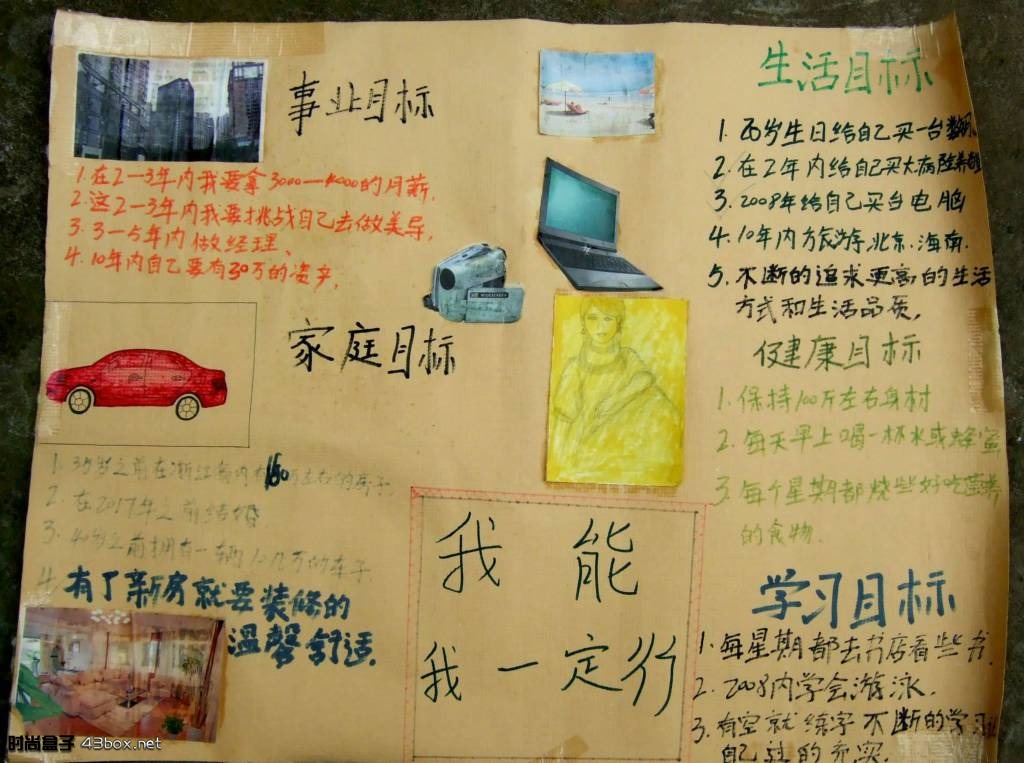 事业目标
1.在2—3年内我要拿3000—4000的月薪.
2.这2—3年内我要挑战自己去做美导,
3.3—5年内做经理、
4.10年内自己要有30万的资产,
家庭目标
1.35岁之前在浙江省内有160万左右的房子
2.在2017年之前结婚
3.40岁之前拥有一辆10几万的车子
4.有了新房就要装修的
温馨舒适.
我能
我一定行
生活目标
1.26岁生日给自己买一台数码
2.在2年内给自己买大病险养
3.2008年给自己买台电脑
4.10年内方旅游.北京.海南.
5.不断的追求更高的生活
方式和生活品质,
健康目标
1.保持100斤左右身材
2.每天早上喝一杯水或蜂蜜
3.每个星期都烧些好吃营养
的食物.
学习目标
1.每星期都去书店看些书.
2.2008内学会游泳.
3.有空就练字不断的学习让
自己过的充实.
时尚盒子 43box.net